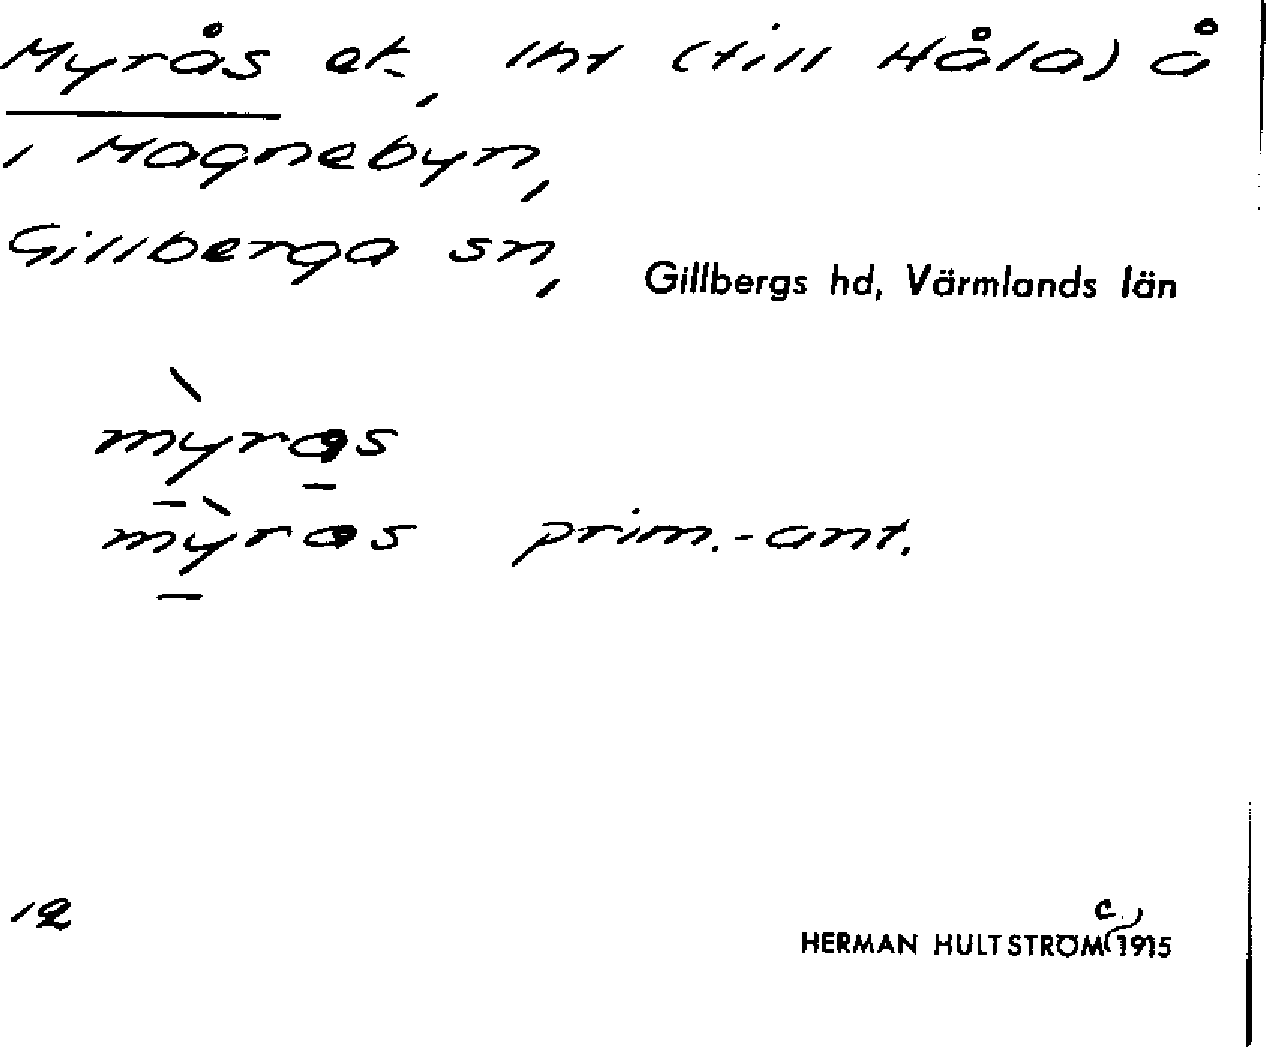 Myrås et., lht (till Håla) å
i Magnebyn,
Gillberga sn,
Gillbergs hd, Värmlands län
mỳ̠ra̠s
mỳ̠ras prim.-ant.
12
HERMAN HULTSTRÖM c. 1915